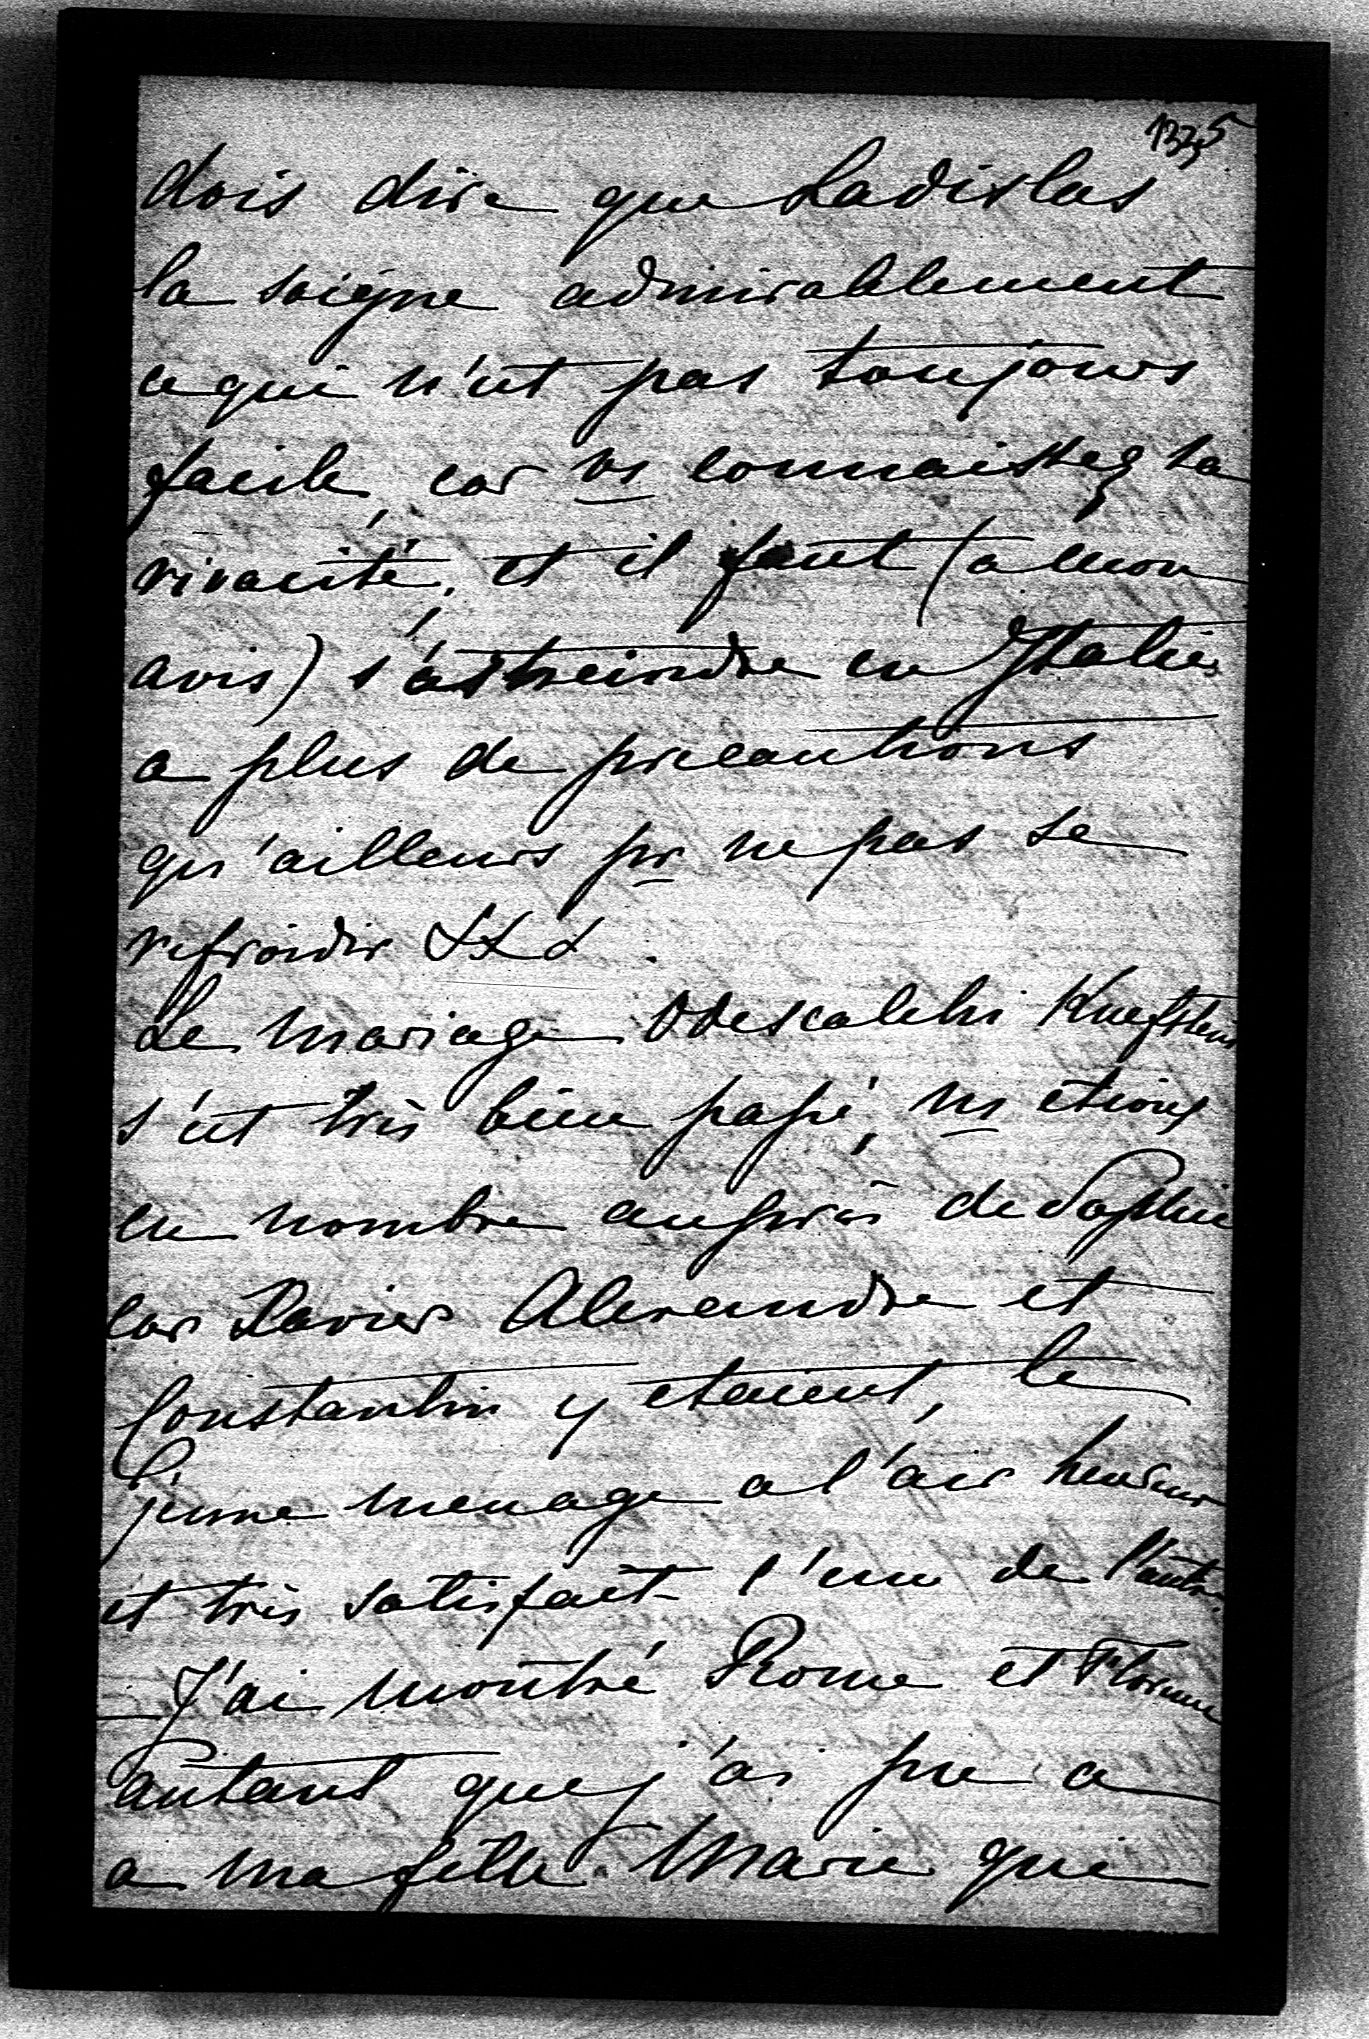 1335
dois dire que Ladislas
la soigne admirablement
ce qui n'est pas toujours
facile, car vs connaissez sa
vivacité, et il faut (a mon
avis) s'astreindre en Italie
a plus de precautions
qu'ailleurs pr ne pas se
refroidir &&&.
Le mariage Odescalchi Kuefstein
s'est très bien passé, ns etions
en nombre auprès de Sophie
car Xavier Alexandre et
Constantin y etaient, le
jeune menage a l'air heureux
et très satisfait l'un de l'autre.
— J'ai montré Rome et Florence
autant que j'ai pu a
a ma fille Marie qui